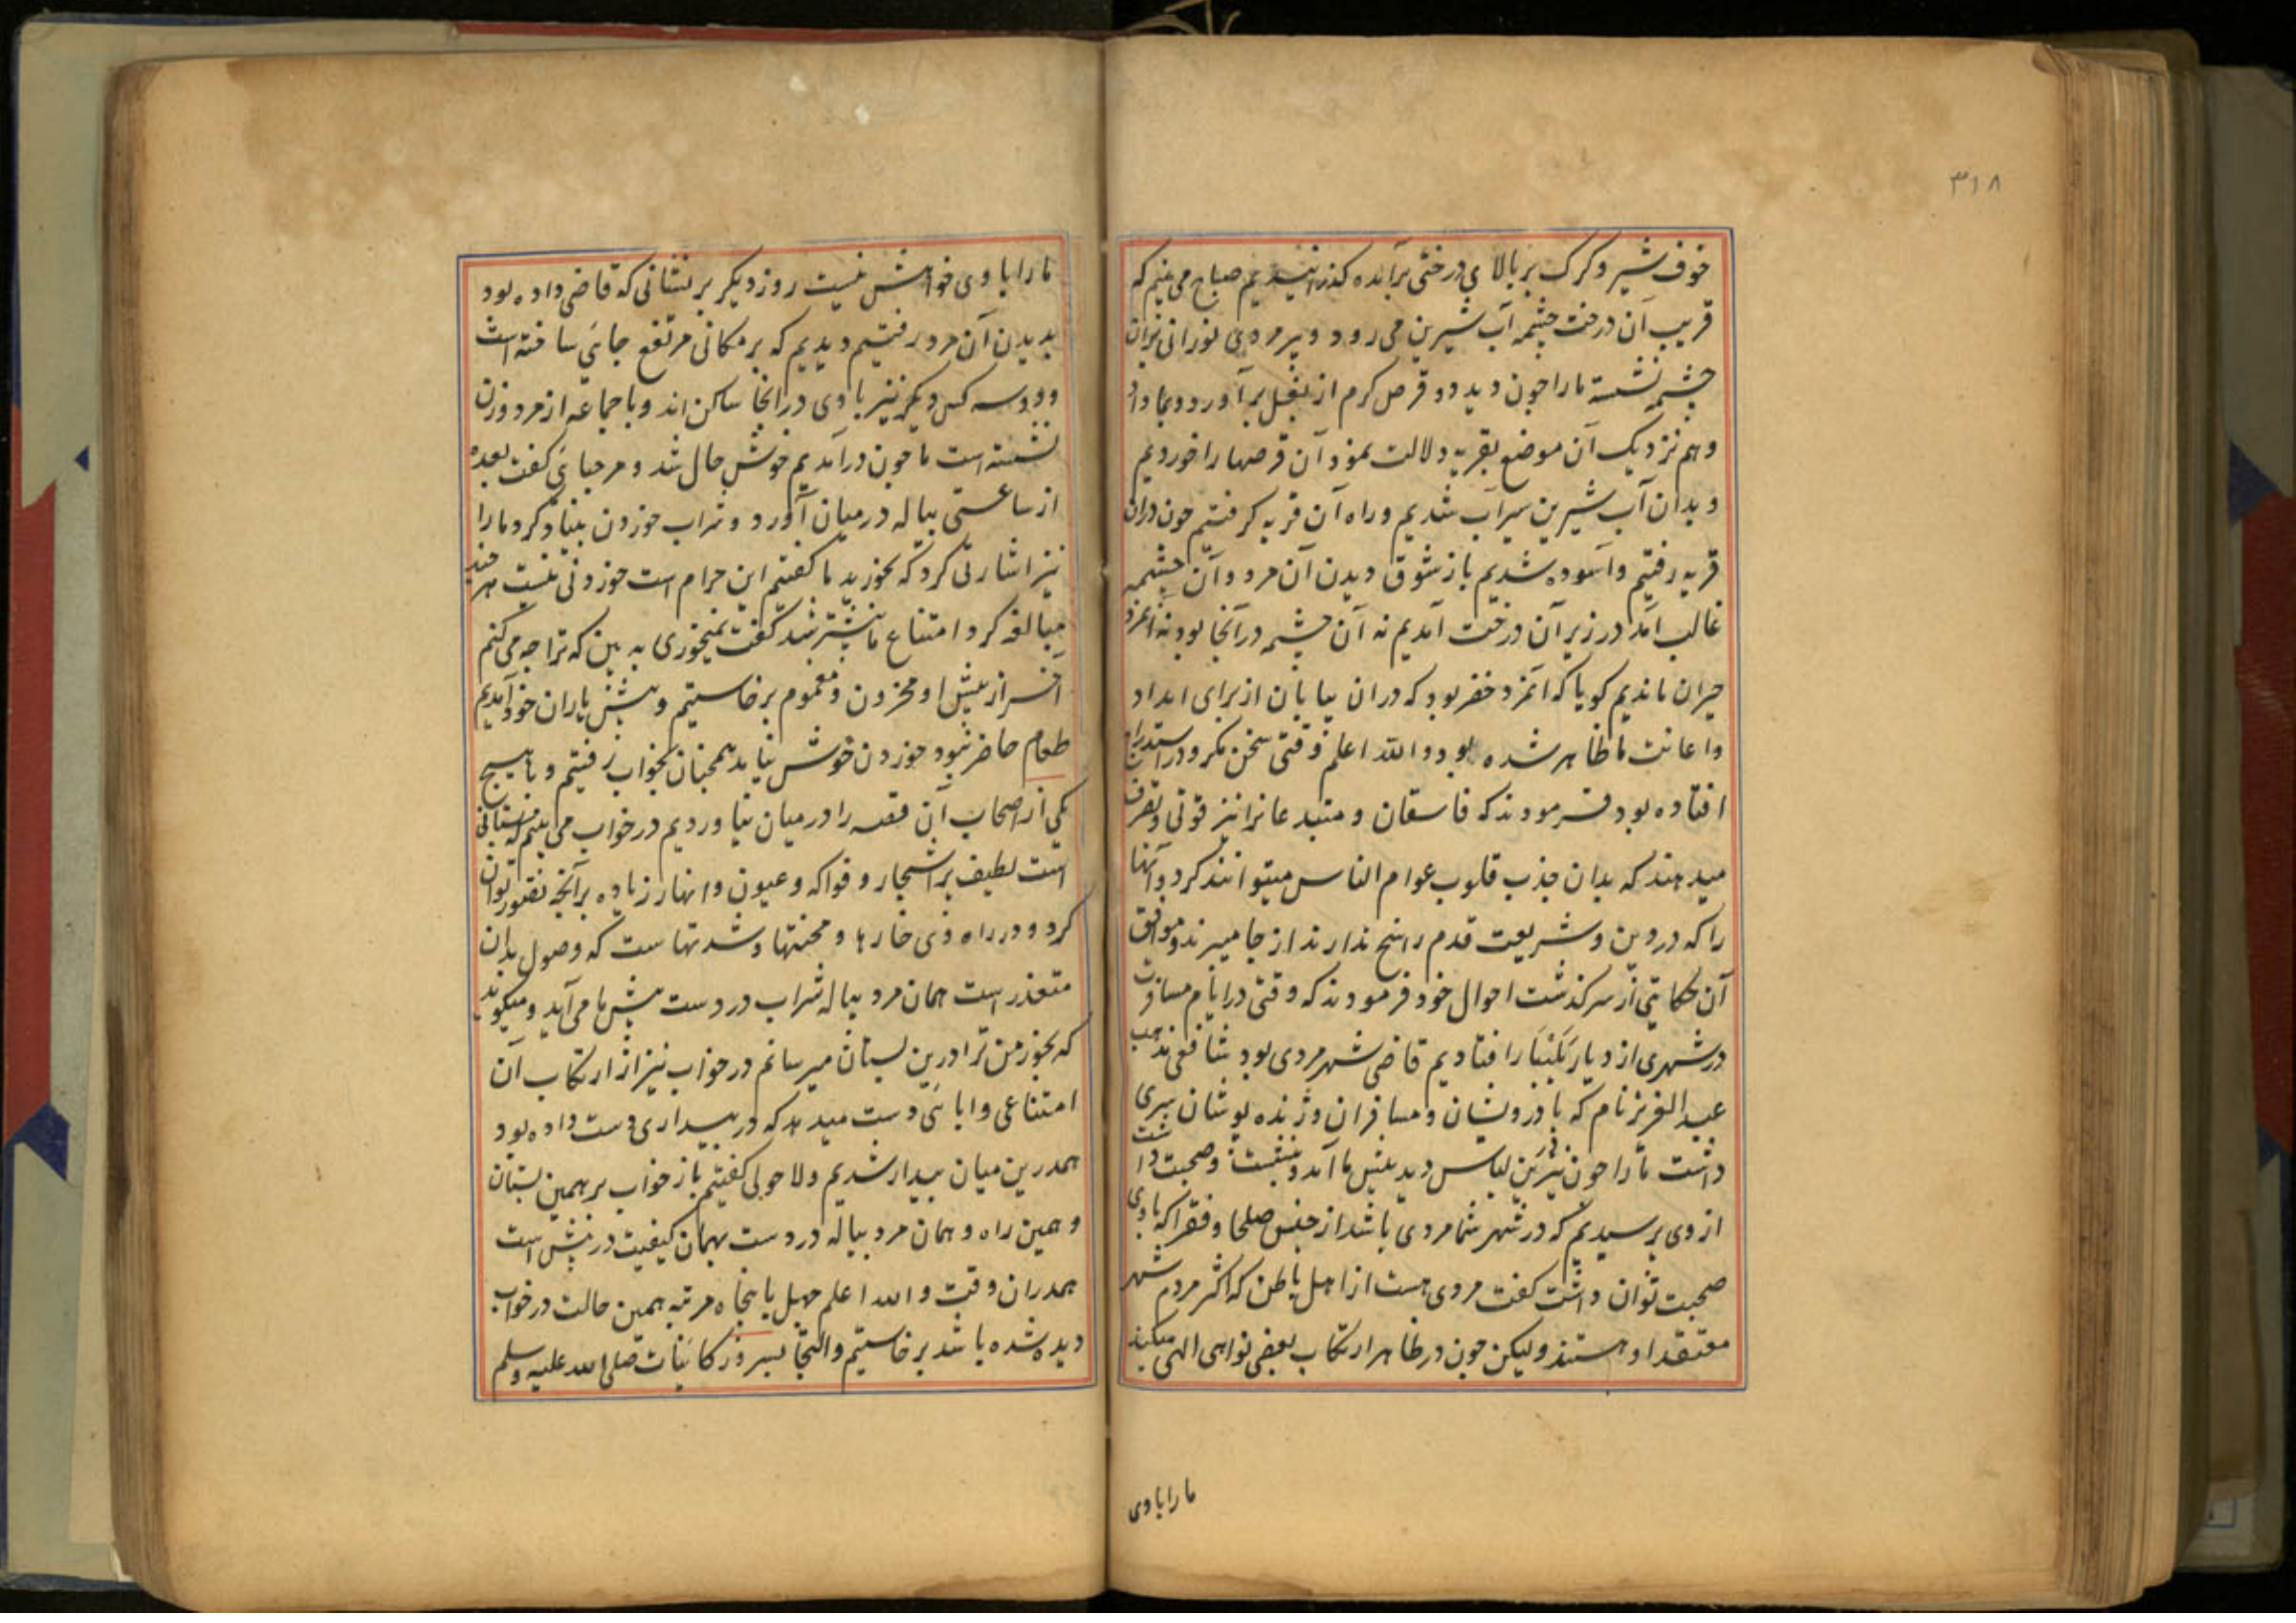 ۳۱۸
خوف شیر و کرک بر بالای درختی برآمده کذرانیدیم صباح می بینم که
قریب آن درخت چشمه آب شیرین می رود و پیر مردی نورانی بران
چشمه نشسته مارا چون دید دو قرص کرم از بغل برآورد و بما داد
و هم نزدیک آن موضع بقریه دلالت نمود آن قرصها را خوردیم
و بدان آب شیرین سیراب شدیم و راه آن قریه کرفتیم چون دران
قریه رفتیم و آسوده شدیم باز شوق دیدن آن مرد و آن چشمه
غالب آمد در زیر آن درخت آمدیم نه آن چشمه در آنجا بود نه آنمرد
حیران ماندیم کویا که آنمرد خضر بود که دران بیابان از برای امداد
و اعانت ما ظاهر شده بود و الله اعلم وقتی سخن مکر و در استدراج
افتاده بود فرمودند که فاسقان و مبتدعانرا نیز قوتی و تصرف
میدهند که بدان جذب قلوب عوام الناس میتوانند کرد و آنها
را که در دین و شریعت قدم راسخ ندارند از جا میبرند و موافق
آن حکایتی از سرکذشت احوال خود فرمودند که وقتی در ایام مسافرت
در شهری از دیار افتادیم قاضی شهر مردی بود شافعی مذهب
عبد العزیز نام که با درویشان و مسافران و ژنده پوشان سری
داشت مارا چون درین لباس دید پیش ما آمد و بنشست و صحبت داشت
از وی پرسیدیم که در شهر شما مردی باشد از جنس صلحا و فقرا که با وی
صحبت توان داشت کفت مردی هست از اهل باطن که اکثر مردم شهر
معتقد او هستند ولیکن چون در ظاهر ارتکاب بعضی نواهی الهی میکند
ما را با وی
ما را با وی خواهش نیست روز دیکر بر نشانی که قاضی داده بود
بدیدن آن مرد رفتیم دیدیم که بر مکانی مرتفع جائی ساخته است
و دو سه کس دیکر نیز با وی در آنجا ساکن اند و با جماعه از مرد و زن
نشسته است ما چون درآمدیم خوش حال شد و مرحبائی کفت بعده
از ساعتی پیاله در میان آورد و شراب خوردن بنیاد کرد و ما را
نیز اشارتی کرد که بخورید ما کفتیم این حرام است خوردنی نیست هر چند
مبالغه کرد امتناع ما بیشتر شد کفت نمیخوری به بین که ترا چه می کنم
آخر از پیش او محزون و مغموم برخاستیم و پیش یاران خود آمدیم
طعام حاضر بود خوردن خوش نیامد همچنان بخواب رفتیم و با هیچ
یکی از اصحاب این قصه را در میان نیاوردیم در خواب می بینم که بستانی
است لطیف پر اشجار و فواکه و عیون و انهار زیاده بر آنچه تصور توان
کرد و در راه وی خارها و محنتها و شدتهاست که وصول بدان
متعذر است همان مرد پیاله شراب در دست پیش ما می آید و میکوید
که بخور من ترا درین بستان میرسانم در خواب نیز از ارتکاب آن
امتناعی و ابائی دست میدهد که در بیداری دست داده بود
همدرین میان بیدار شدیم و لا حولی کفتیم باز خواب بر همین بستان
و همین راه و همان مرد پیاله در دست بهمان کیفیت در پیش است
همدران وقت و الله اعلم چهل پنجاه مرتبه همین حالت در خواب
دیده شده باشد برخاستیم و التجا بسرور کائنات صلی الله علیه و سلم